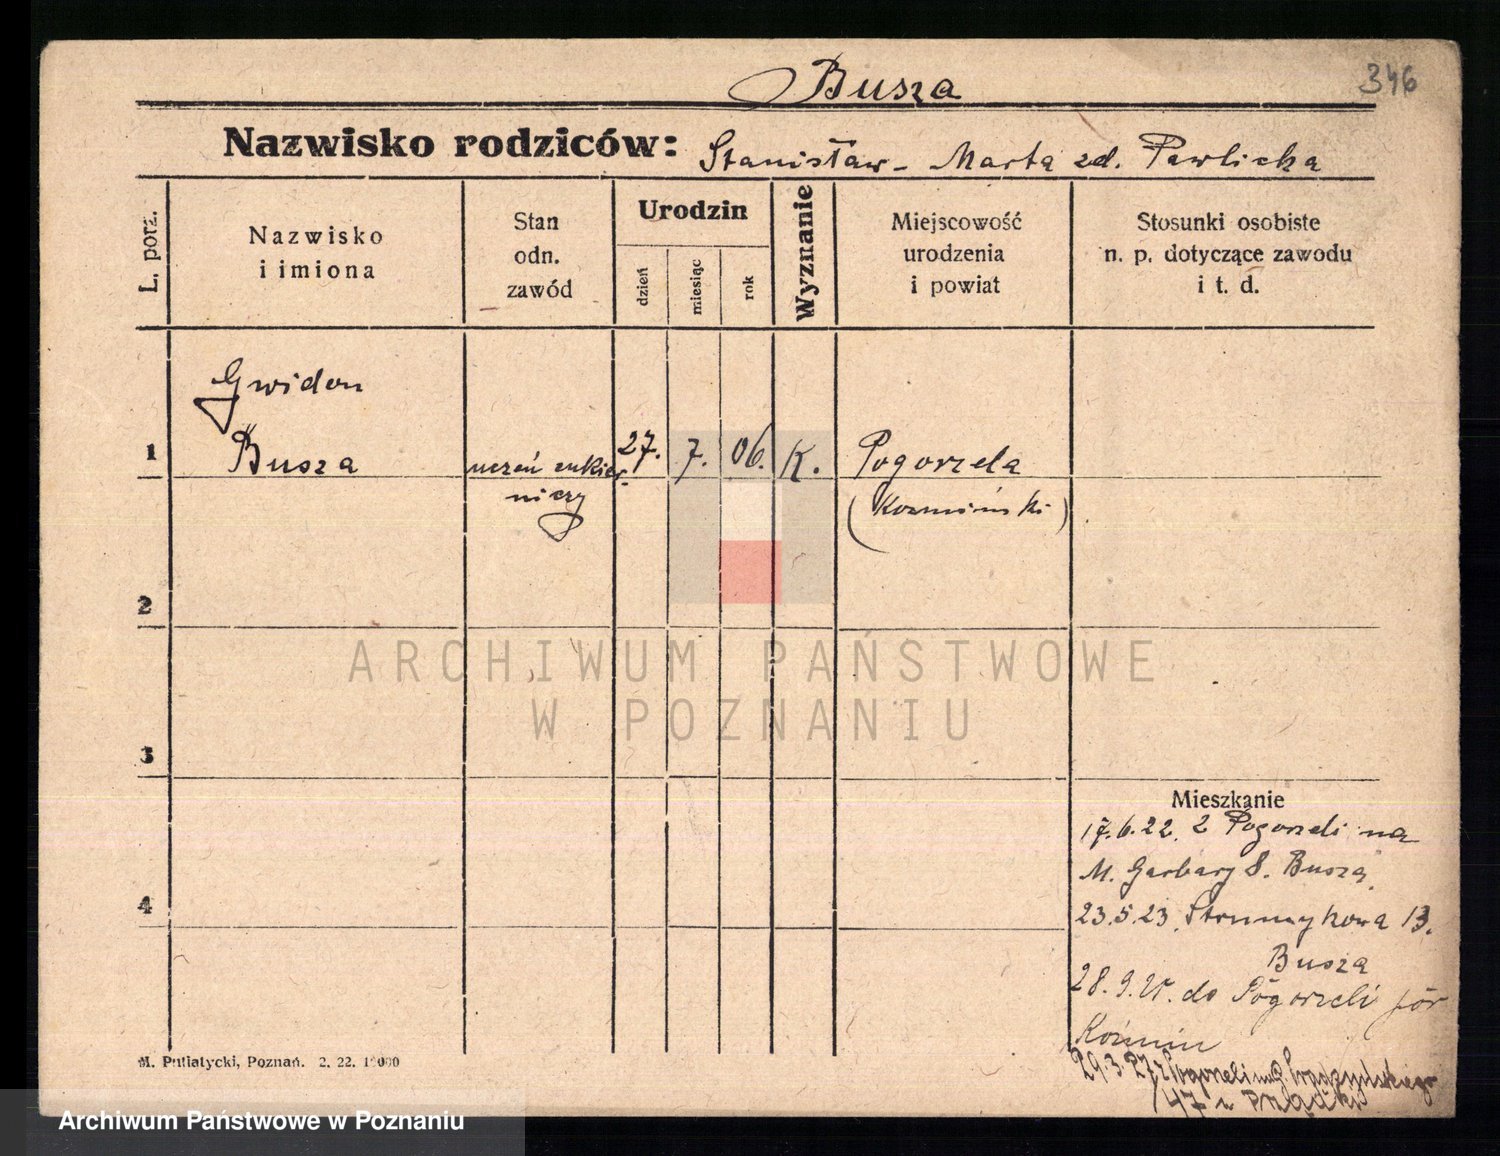 Busza
346
Nazwisko rodziców: Stanisław - Marta zd. Pawlicka
L. porz.
Nazwisko
i imiona
Stan
odn.
zawód
Urodzin
dzień
miesiąc
rok
Wyznanie
Miejscowość
urodzenia
i powiat
Stosunki osobiste
n. p. dotyczące zawodu
i t. d.
Gwidon
1 Busza uczeń cukier- 27. 7. 06. K. Pogorzela
niczy (Koźmiński)
2
ARCHIWUM PAŃSTWOWE
W POZNANIU
3
Mieszkanie
17.6.22. z Pogorzeli na
M. Garbary 8. Busza.
4
23.5.23. Strumykowa 13.
Busza
28.9.25. do Pogorzeli
Koźmin
29.3.27 z Pogorzeli
M. Putiatycki, Poznań. 2. 22. 15000
Archiwum Państwowe w Poznaniu